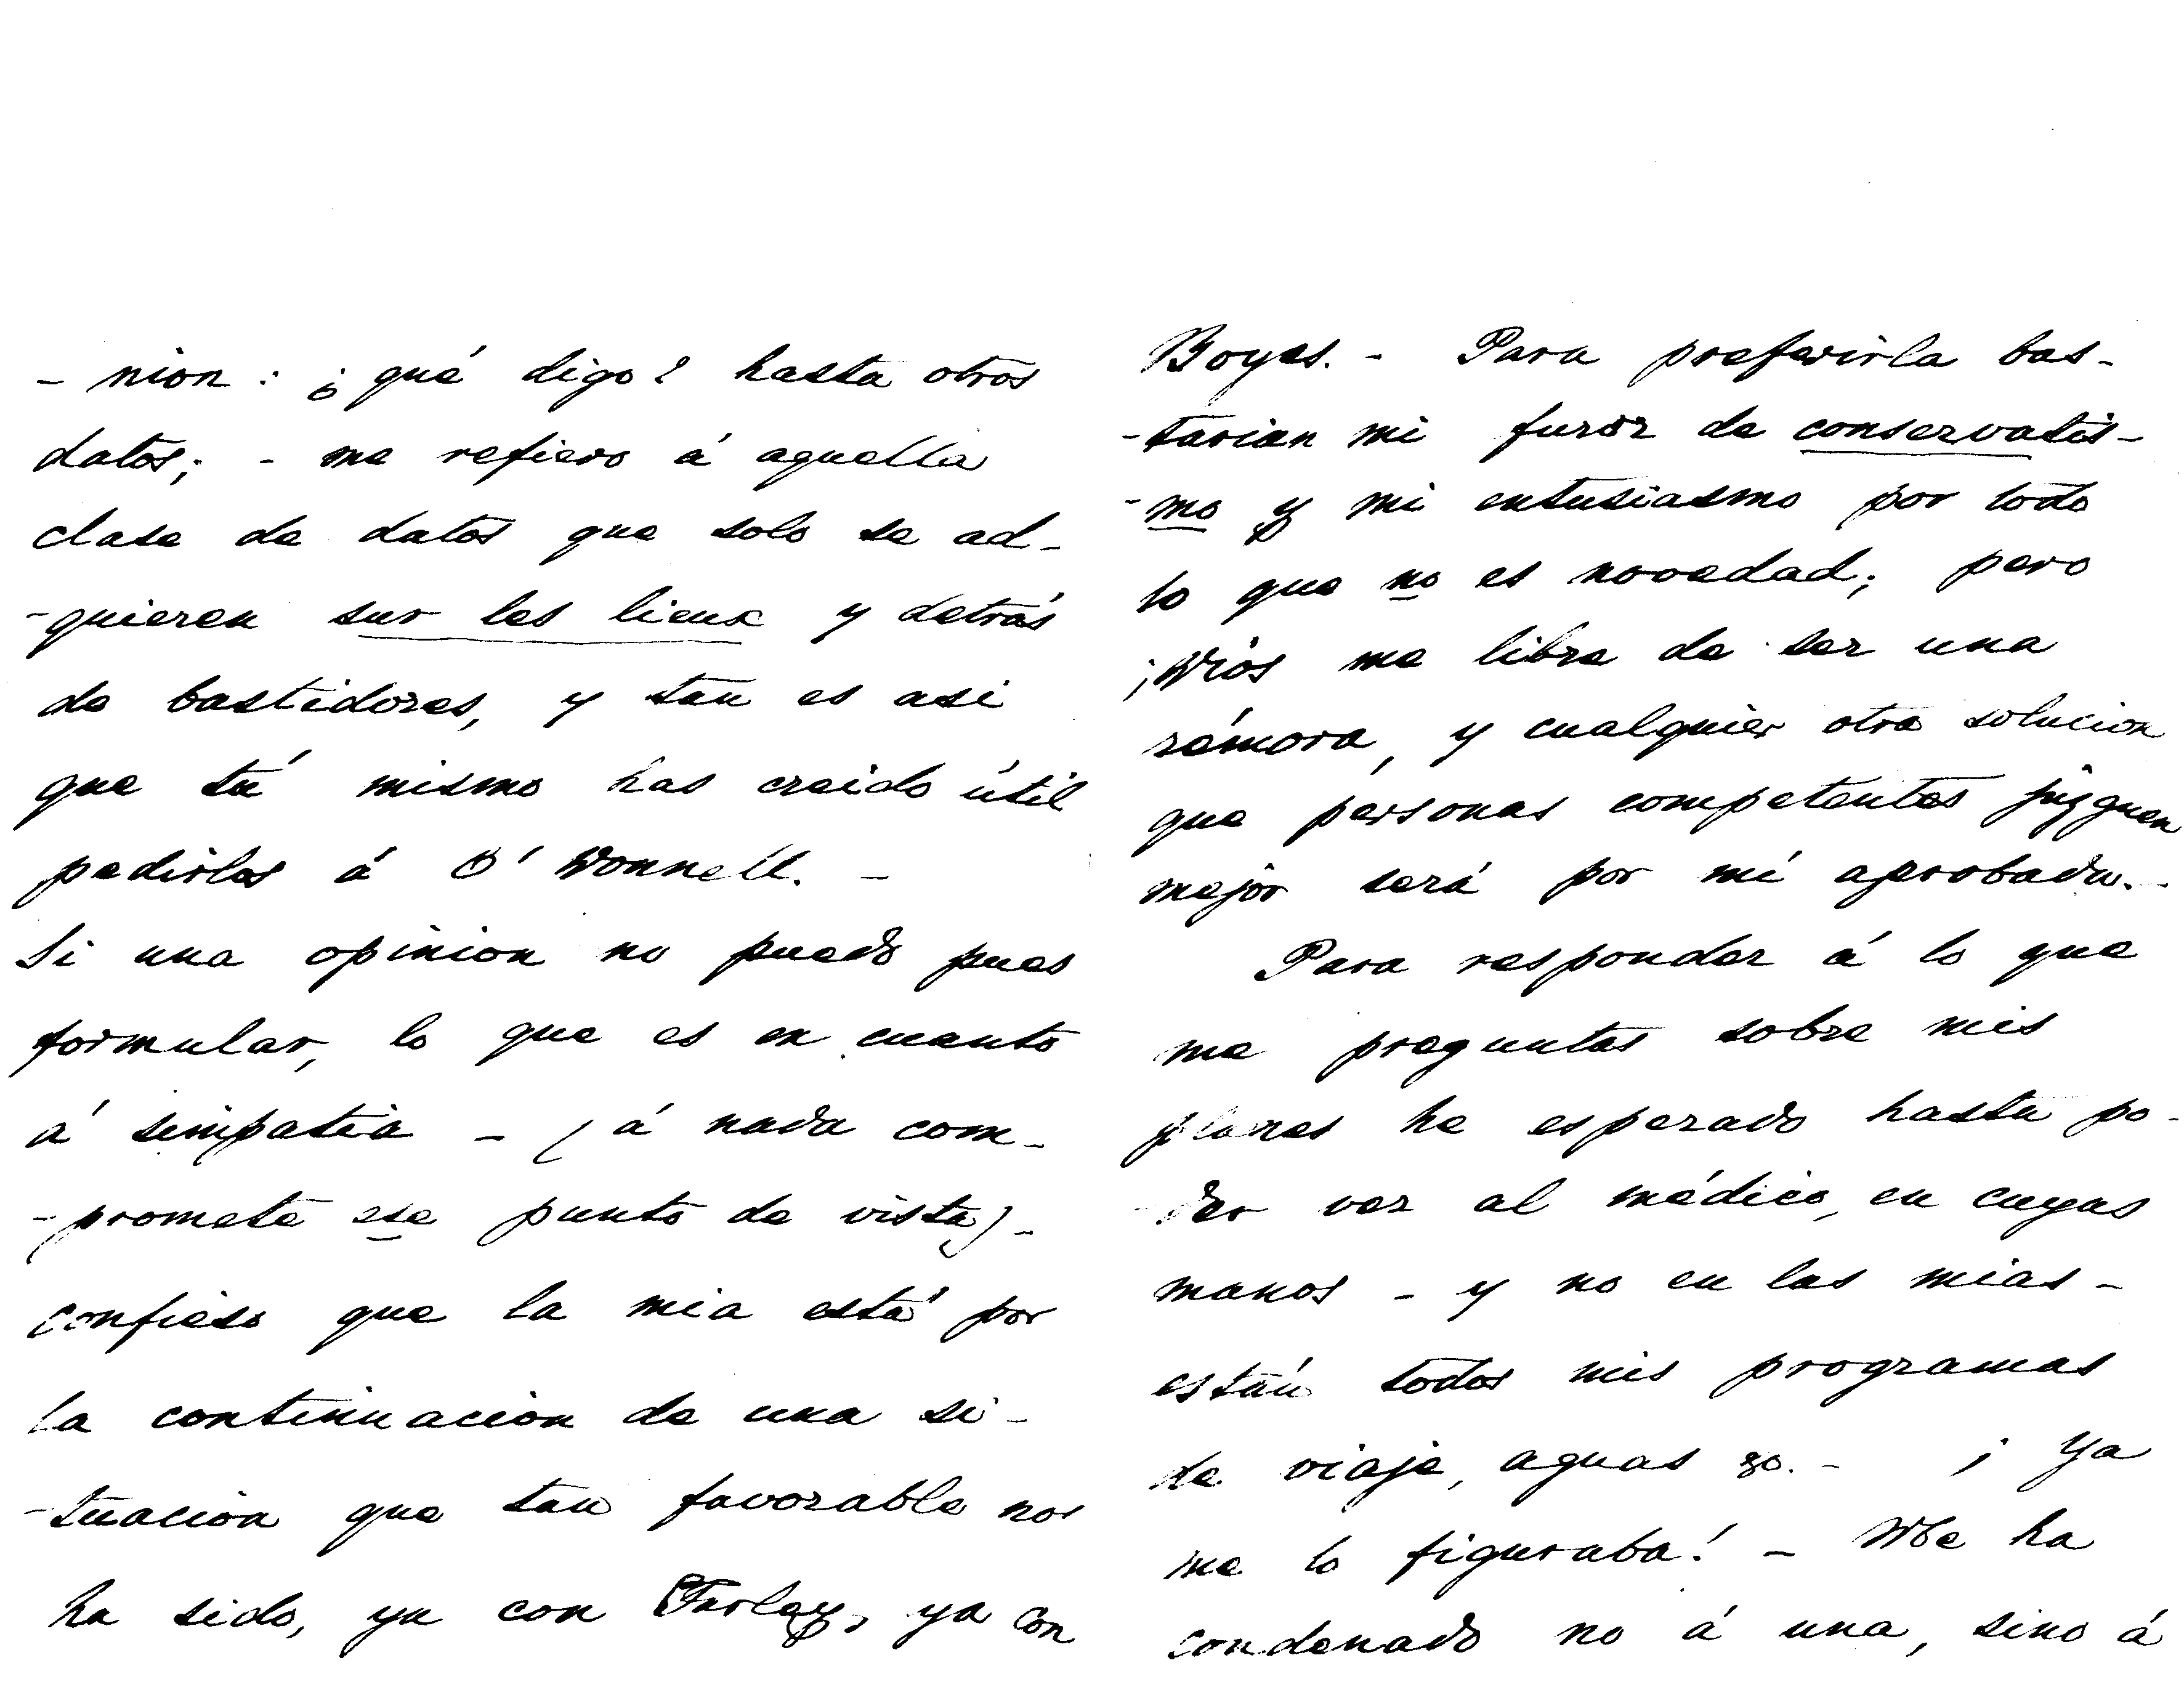 - nion : ¿ qué digo? hasta otros
datos; - me refiero á aquella
clase de datos que solo se ad-
-quieren sur les lieux y detrás
de bastidores, y tan es asi
que tú mismo has creido útil
pedirlos á O' Donnell. -
Si una opinion no puedo pues
formular, lo que es en cuanto
á simpatia - (á nada com-
-promete ese punto de vista) -
confieso que la mia está por
la continuacion de una si-
-tuacion que tan favorable nos
ha sido, ya con Farlay, ya con
Noyes. - Para preferirla bas-
-tarian mi furor de conservatis-
-mo y mi entusiasmo por todo
lo que no es novedad; pero
¡Dios me libre de ser una
rémora, y cualquier otra solucion
que personas competentes juzguen
mejor será por mí aprobada. -
Para responder á lo que
me preguntas sobre mis
planes he esperado hasta po-
-der ver al médico, en cuyas
manos - y no en las mias -
están todos mis programas
de viaje, aguas &c. - ¡ Ya
me lo figuraba! - Me ha
condenado no á una, sino á